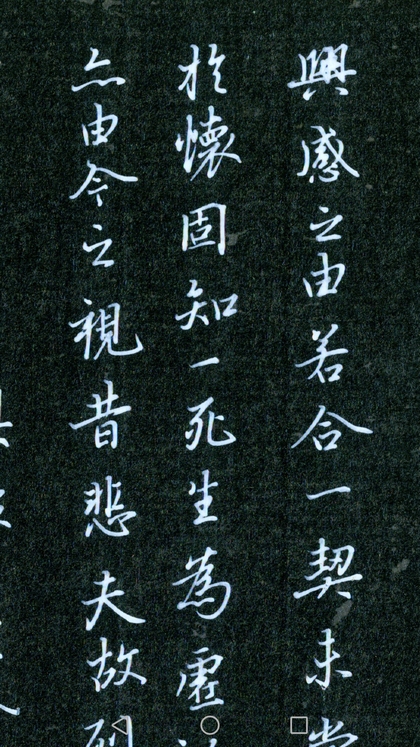 興感之由若合一契未嘗
於懷固知一死生為虛
亦由今之視昔悲夫故列